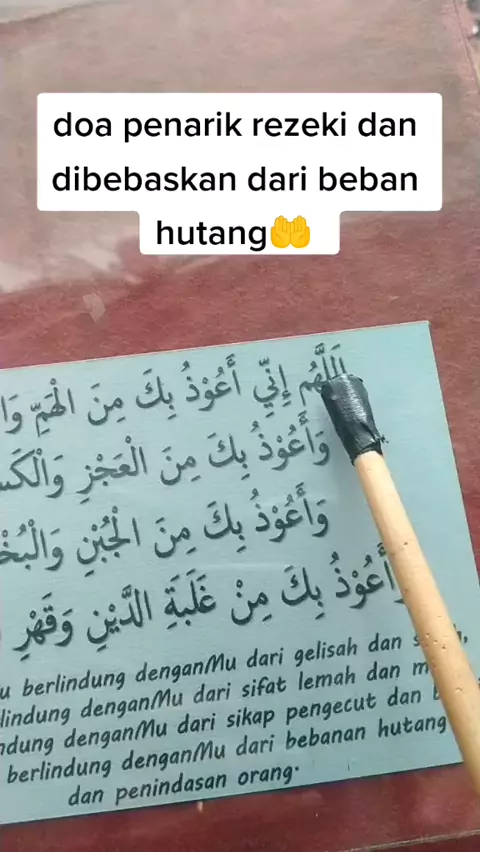 doa penarik rezeki dan
dibebaskan dari beban
hutang🤲
اَللَّهُم إِنِّي أَعُوْذُ بِكَ مِنَ الْهَمِّ
وَأَعُوْذُ بِكَ مِنَ الْعَجْزِ
وَأَعُوْذُ بِكَ مِنَ الْجُبْنِ
أَعُوْذُ بِكَ مِنْ غَلَبَةِ الدَّيْنِ وَقَهْرِ
berlindung denganMu dari gelisah dan
denganMu dari sifat lemah dan
denganMu dari sikap pengecut dan
berlindung denganMu dari bebanan hutang
dan penindasan orang.